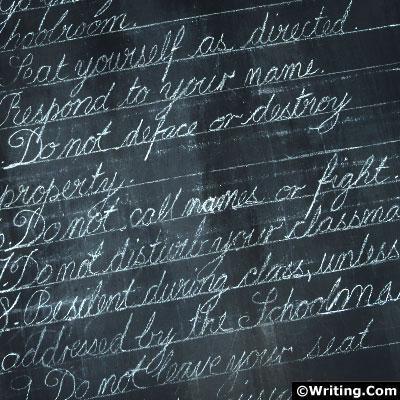 Seat yourself as directed.
Respond to your name.
Do not deface or destroy
property.
Do not call names or fight.
Do not disturb your classma
8. Be silent during class, unless
addressed by the Schoolma
9. Do not leave your seat
©Writing.Com